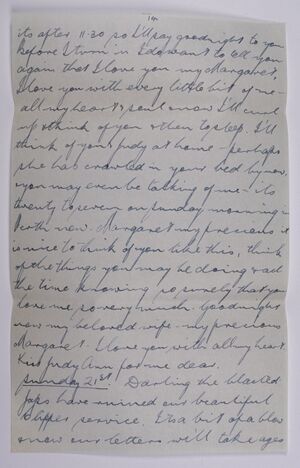 14.
its after 11.30 so I'll say goodnight to you
before I turn in I do want to tell you
again that I love you my Margaret,
I love you with every little bit of me –
all my heart & soul & now I'll curl
up & think of you & then to sleep. I'll
think of you & Judy at home – perhaps
she has crawled in your bed by now
& you may even be talking of me – its
twenty to seven on Sunday morning in
Perth now. Margaret my precious it
is nice to think of you like this, think
of the things you may be doing & all
the time knowing so surely that you
love me so very much. Goodnight
now my beloved wife – my precious
Margaret. I love you with all my heart.
Kiss Judy Ann for me dear.
Sunday 21st. Darling the blasted
Japs have ruined our beautiful
Clipper service. Its a bit of a blow
& now our letters will take ages